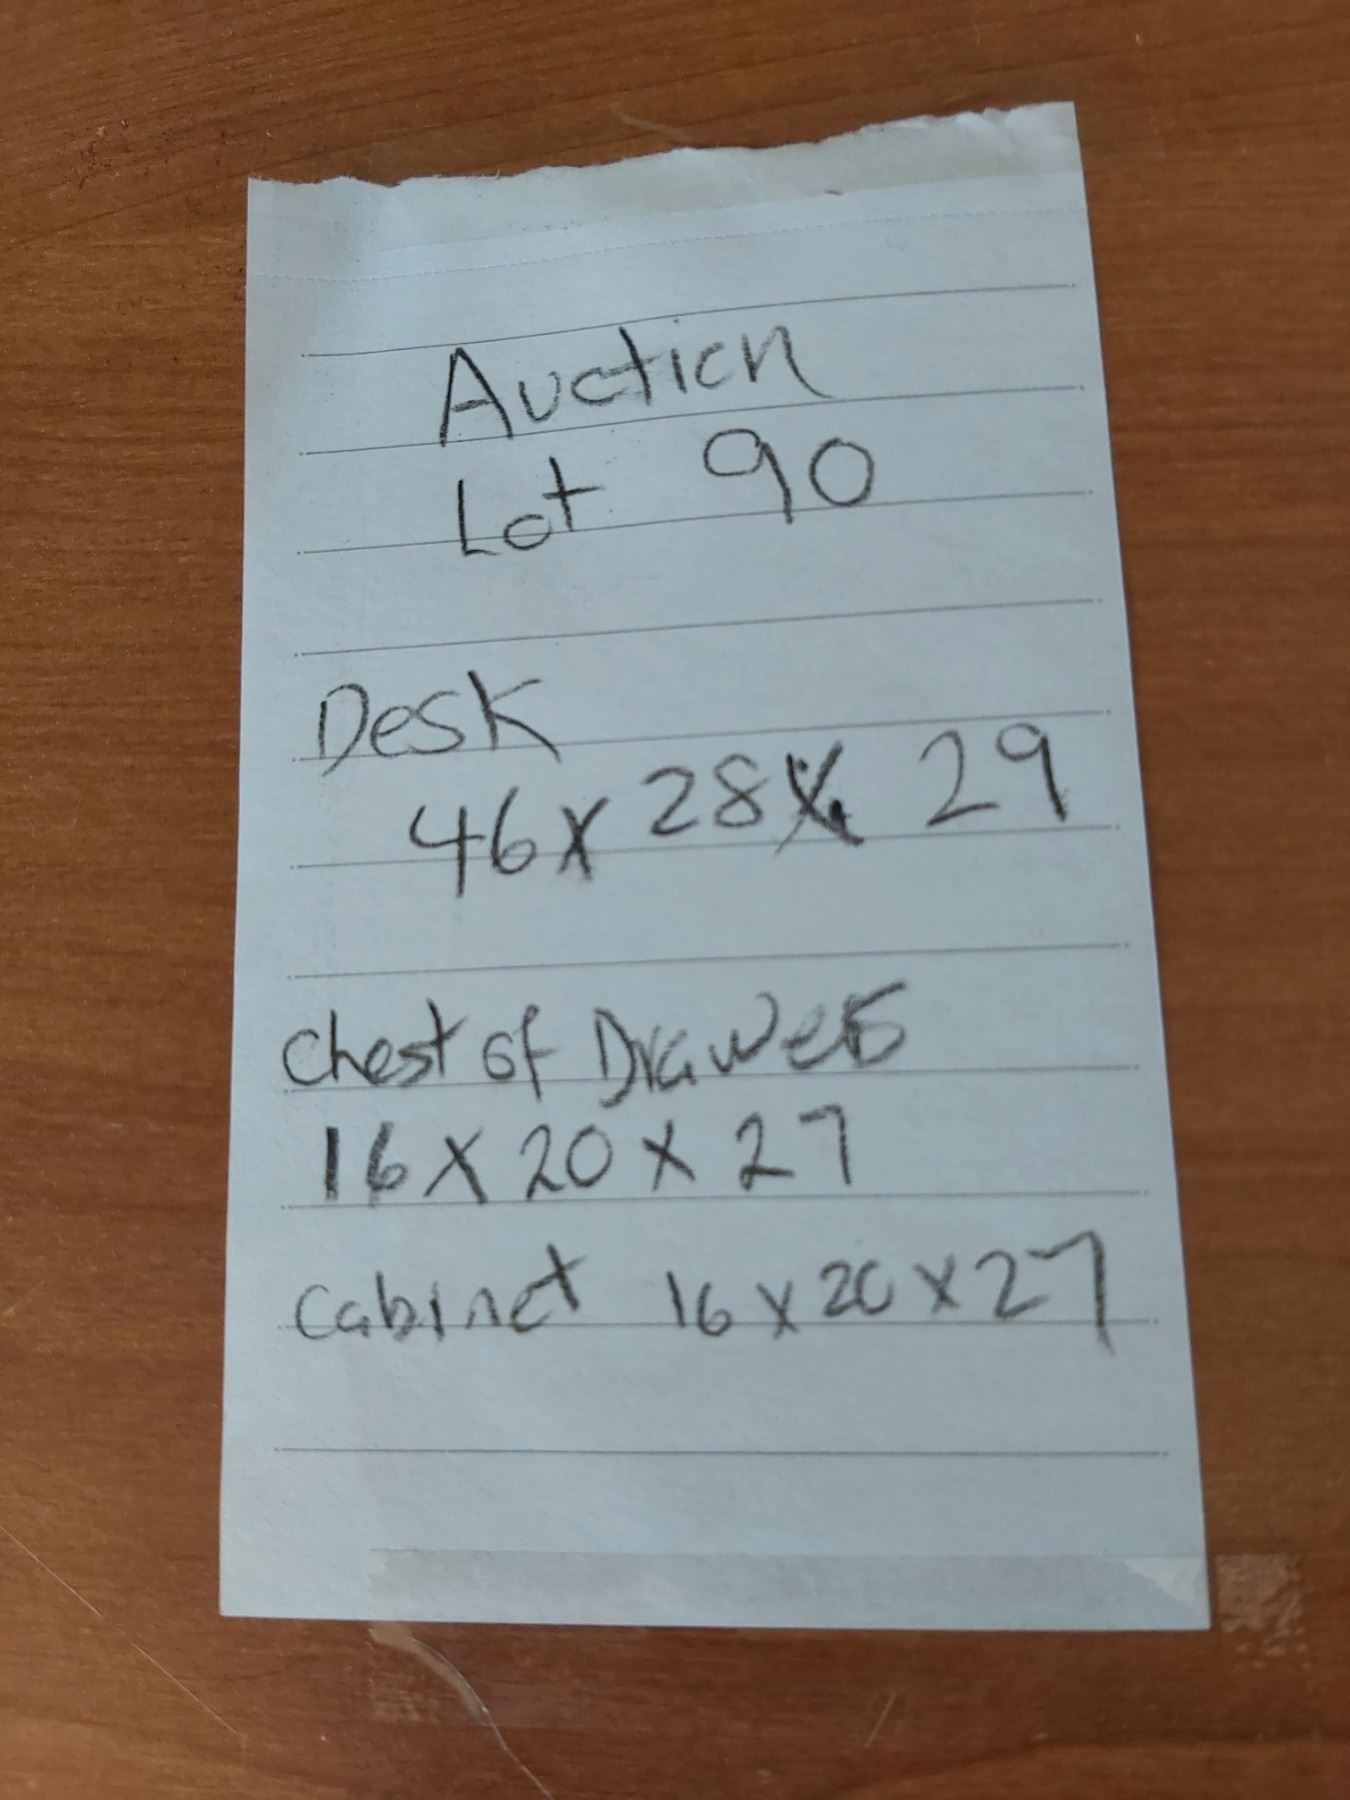 Auction
Lot 90
Desk
46 x 28 x 29
Chest of Drawers
16 x 20 x 27
Cabinet 16 x 20 x 27